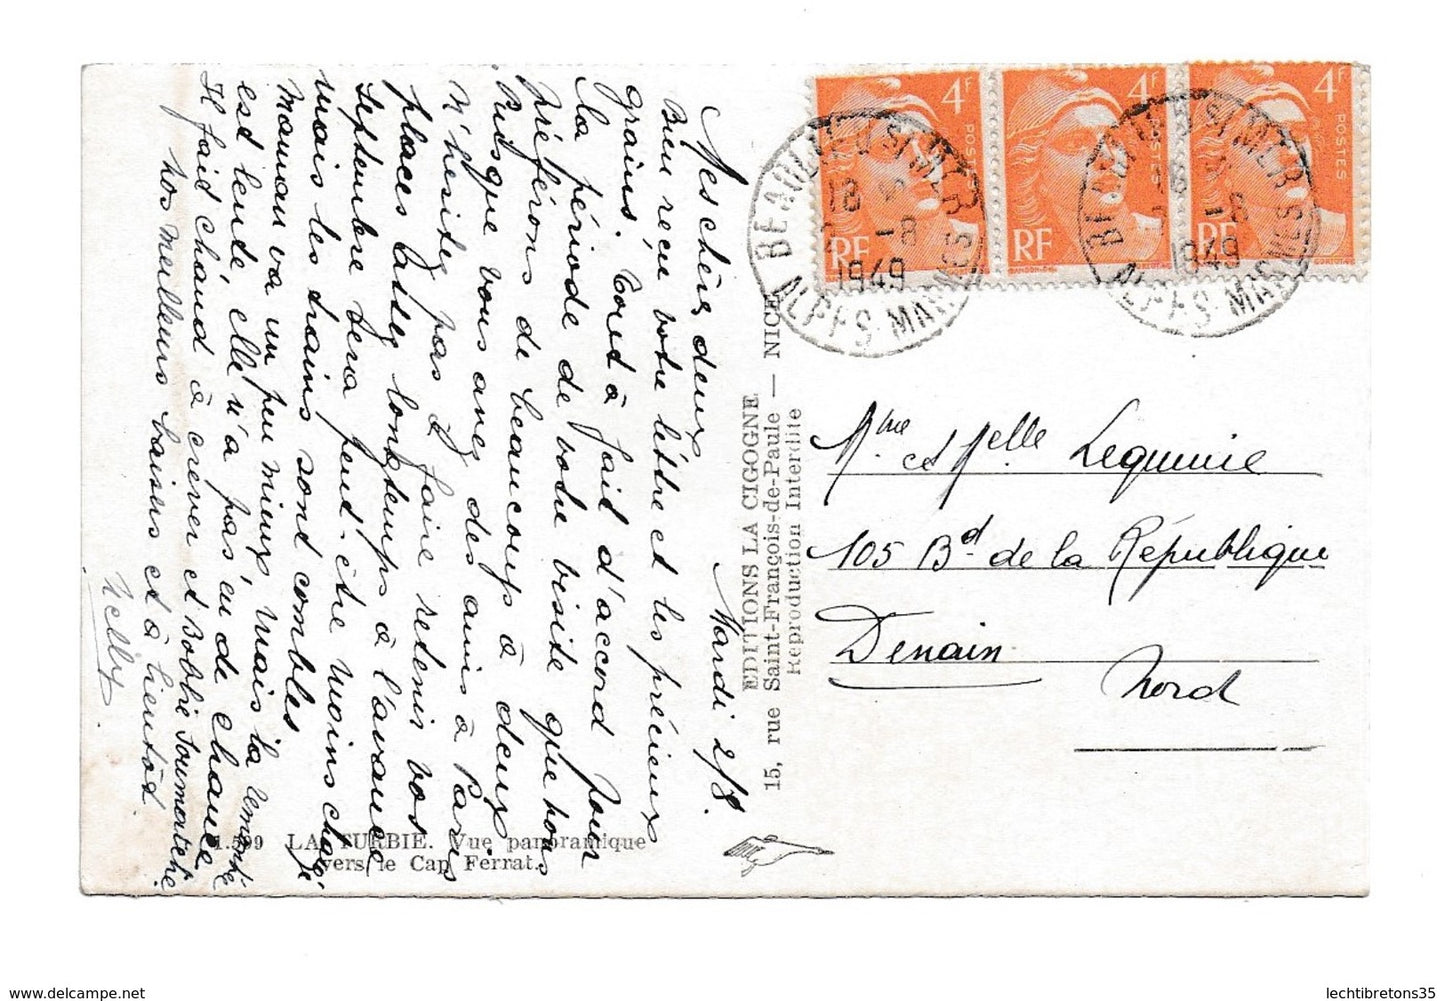 Mardi 2/8.
Mes chères deux
Bien reçu votre lettre et les précieux
grains. Tout à fait d'accord pour
la période de votre visite que nous
préférons de beaucoup à deux
Puisque vous avez des amis à Paris
N'hésitez pas à faire retenir vos
places assez longtemps à l'avance
Septembre sera peut-être moins chargé
mais les trains sont combles
Maman va un peu mieux mais la remontée
est lente, elle n'a pas eu de chance
Il fait chaud à crever et Bobbie
nos meilleurs baisers et à bientôt
Nelly
.599 LA TURBIE. Vue panoramique
vers le Cap Ferrat.
EDITIONS LA CIGOGNE
15, rue Saint-François-de-Paule — NICE
Reproduction Interdite
4F
POSTES
RF
4F
POSTES
RF
4F
POSTES
RF
BEAULIEU S/ MER
18
-8
1949
ALPES MARMES
BEAULIEU S/ MER
18
-8
1949
ALPES MARMES
Mme et Melle Lequimie
105 Bd de la République
Denain
Nord
lechtibretons35